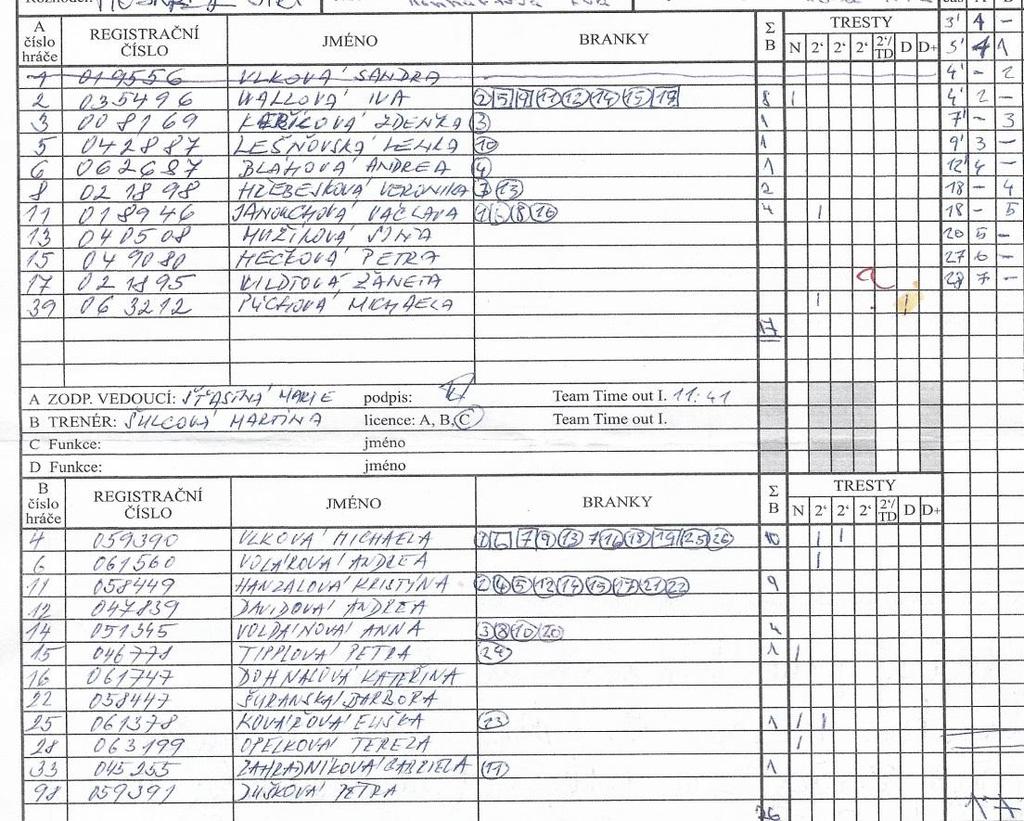 A číslo hráče REGISTRAČNÍ ČÍSLO JMÉNO BRANKY Σ B TRESTY
N 2' 2' 2' 2'/TD D D+
3' 4 –
5' 4 1
1 019556 VLKOVÁ SANDRA 4' – 2
2 035496 WALLOVÁ IVA 2 5 9 11 12 14 15 17 8 I 4' 2 –
3 008169 ZDENKA 3 1 7' – 3
5 042887 LEŠŇOVSKÁ LENKA 10 1 9' 3 –
6 062687 BLÁHOVÁ ANDREA 4 1 12' 4 –
8 021898 HŘEBEJKOVÁ VERONIKA 7 13 2 18 – 4
11 018946 JANOUCHOVÁ VÁCLAVA 1 6 8 16 4 I 18 – 5
13 040508 MUŽÍKOVÁ SOŇA 20 5 –
15 049080 HEČKOVÁ PETRA 27 6 –
17 021895 WILDTOVÁ ŽANETA 28 7 –
39 063212 PUCHOVÁ MICHAELA I I
17
A ZODP. VEDOUCÍ: ŠŤASTNÁ MARIE podpis: Team Time out I. 11:41
B TRENÉR: ŠULCOVÁ MARTINA licence: A, B, C Team Time out I.
C Funkce: jméno
D Funkce: jméno
B číslo hráče REGISTRAČNÍ ČÍSLO JMÉNO BRANKY Σ B TRESTY
N 2' 2' 2' 2'/TD D D+
4 059390 VLKOVÁ MICHAELA 1 6 7 9 13 7 16 18 19 25 26 10 I I
6 061560 VOLÁKOVÁ ANDREA I
11 058449 HANZALOVÁ KRISTÝNA 2 4 5 12 14 15 17 21 22 9
12 047839 DAVIDOVÁ ANDREA
14 051345 VOLDÁNOVÁ ANNA 3 8 10 20 4
15 046778 TIPPLOVÁ PETRA 24 1 I
16 061747 DOHNALOVÁ KATEŘINA
22 058447 ŠURANSKÁ BARBORA
25 061378 KOVÁŘOVÁ ELIŠKA 23 1 I I
28 063199 OPELKOVÁ TEREZA I
33 045255 ZAHRADNÍKOVÁ GABRIELA 11 1
98 059391 DUŠKOVÁ PETRA
26 17